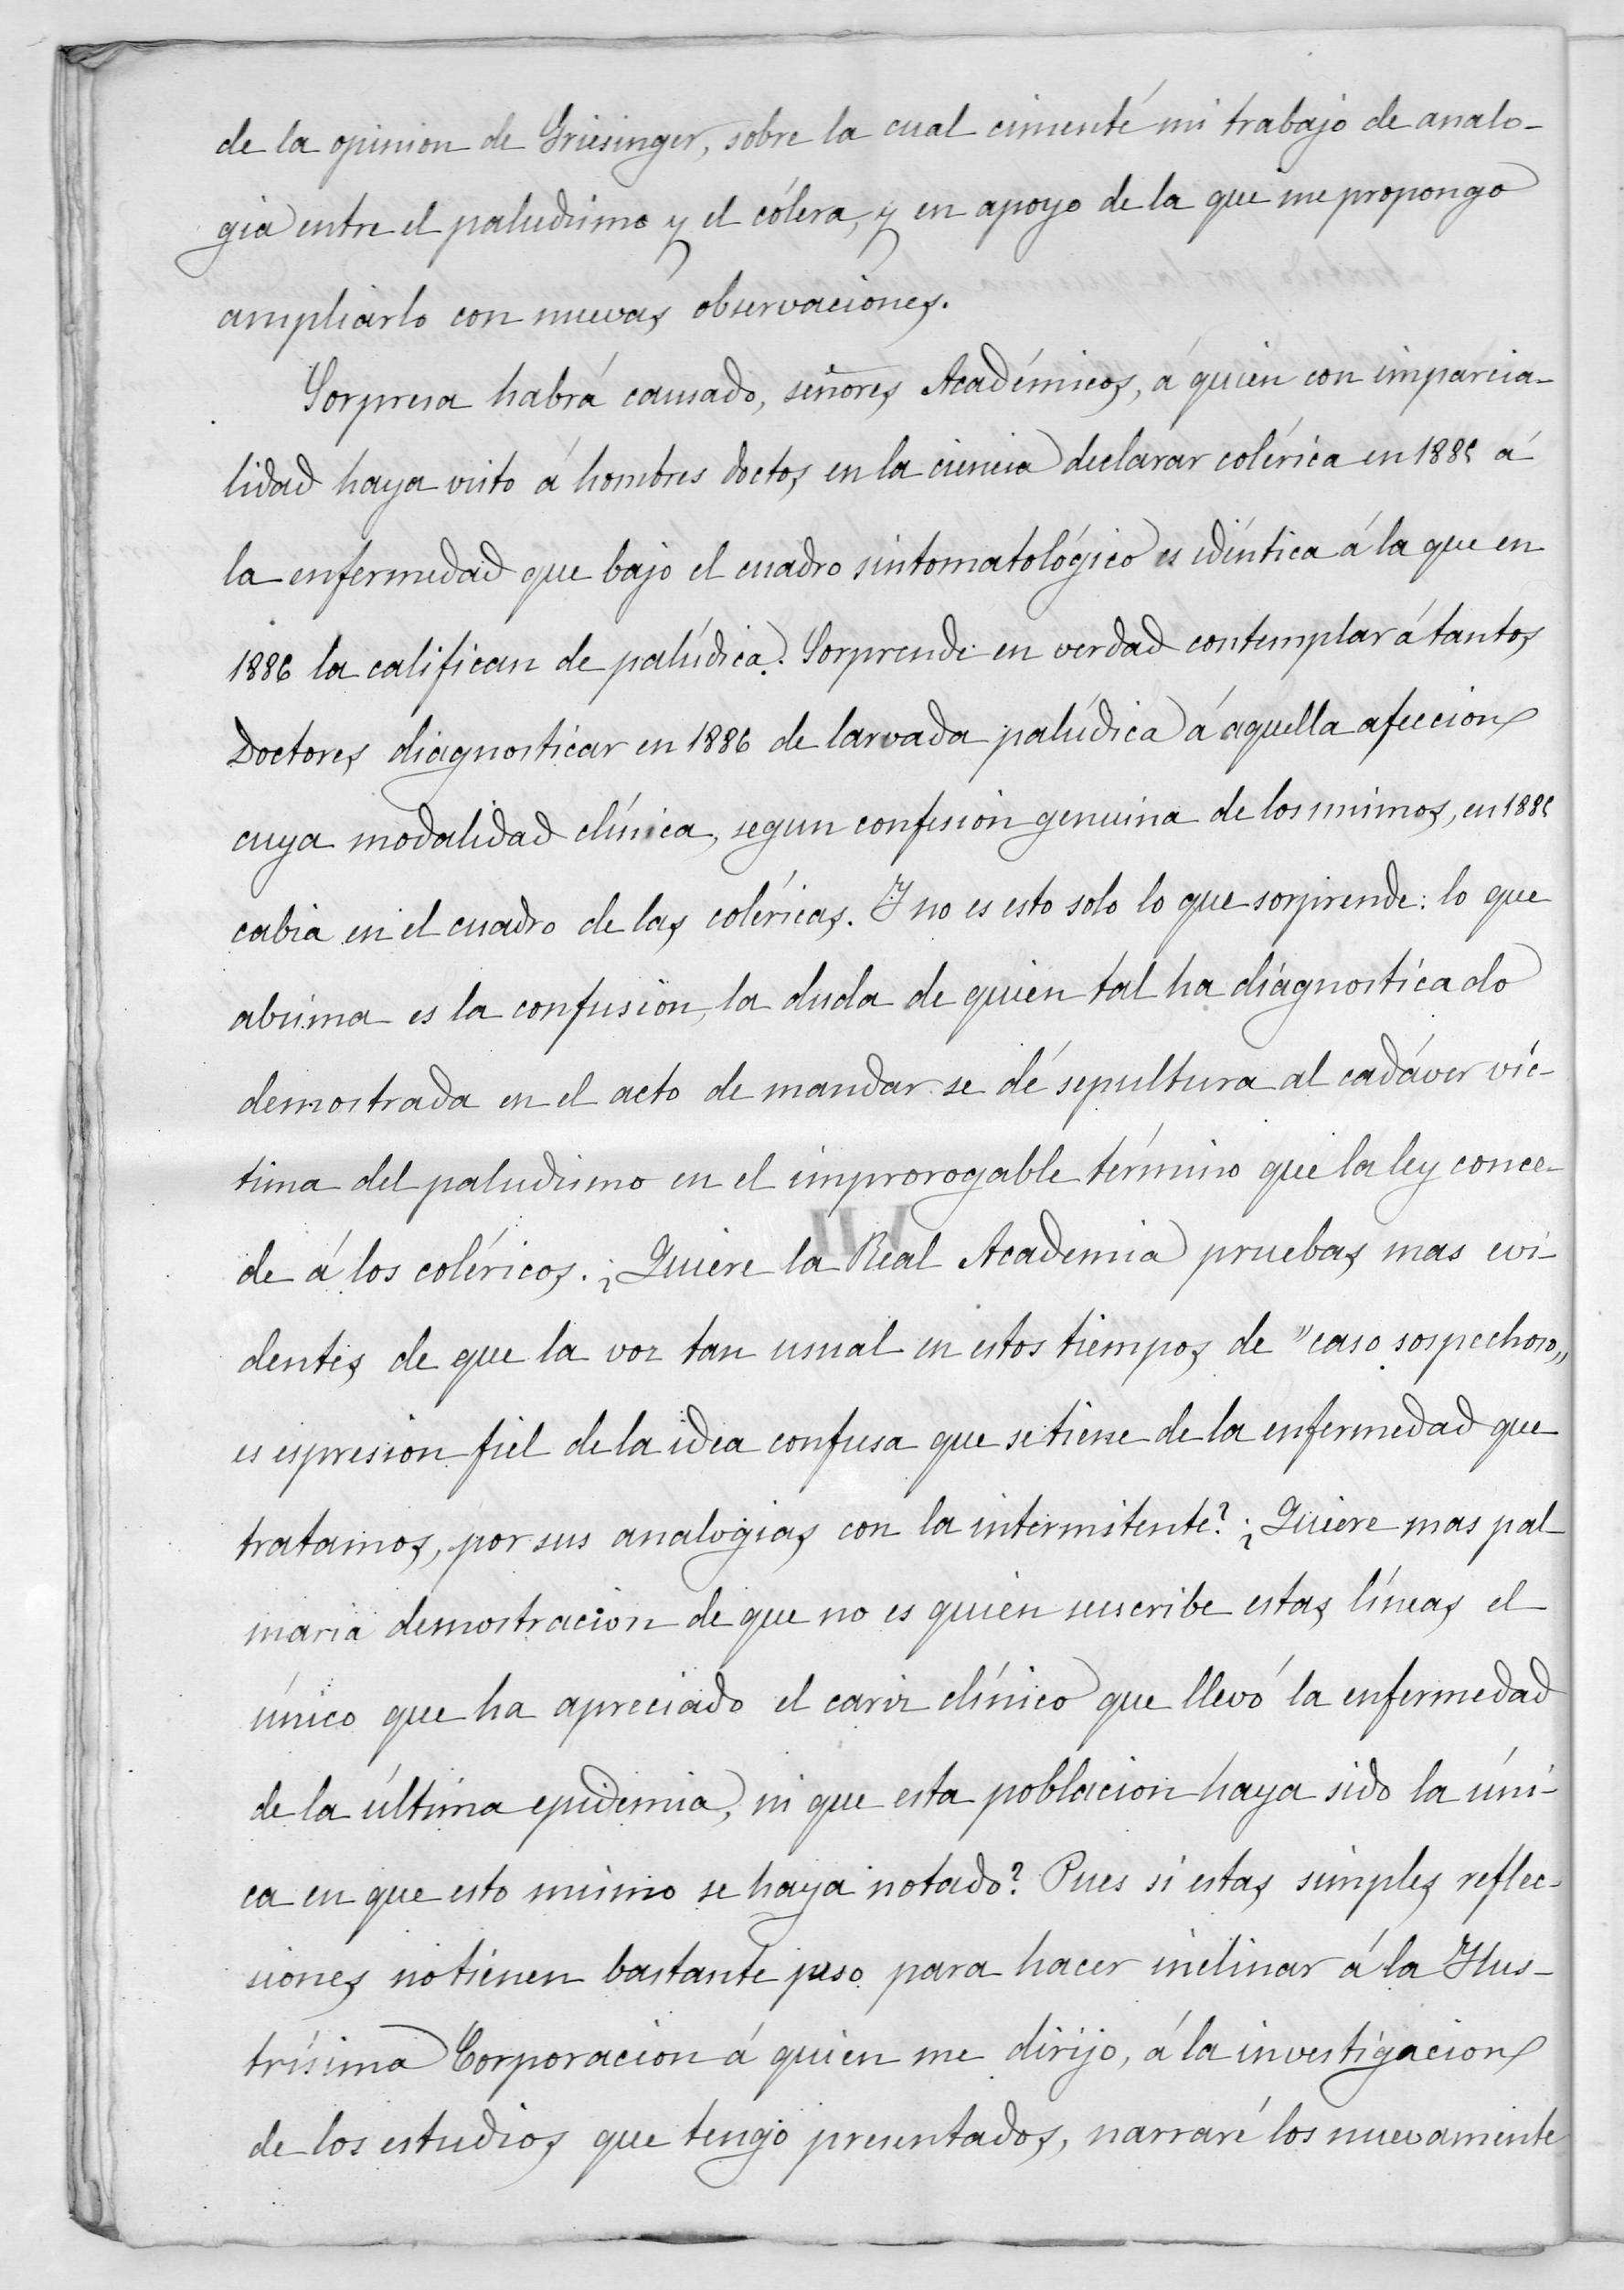 de la opinion de Griesinger, sobre la cual cimenté mi trabajo de analo-
gia entre el paludismo y el cólera, y en apoyo de la que me propongo
ampliarlo con nuevas observaciones.
Sorpresa habrá causado, señores Académicos, á quien con imparcia-
lidad haya visto á hombres doctos en la ciencia declarar colérica en 1885 á
la enfermedad que bajo el cuadro sintomatológico es idéntica á la que en
1886 la califican de palúdica. Sorprende en verdad contemplar á tantos
Doctores diagnosticar en 1886 de larvada palúdica á aquella afeccion
cuya modalidad clínica, segun confesion genuina de los mismos, en 1885
cabia en el cuadro de las coléricas. Y no es esto solo lo que sorprende: lo que
abisma es la confusion, la duda de quien tal ha diagnosticado
demostrada en el acto de mandar se dé sepultura al cadáver víc-
tima del paludismo en el improrogable término que la ley conce-
de á los coléricos. ¿Quiere la Real Academia pruebas mas evi-
dentes de que la voz tan usual en estos tiempos de "caso sospechoso„
es espresion fiel de la idea confusa que se tiene de la enfermedad que
tratamos, por sus analogias con la intermitente? ¿Quiere mas pal
maria demostracion de que no es quien suscribe estas líneas el
único que ha apreciado el cariz clínico que llevó la enfermedad
de la última epidemia, ni que esta poblacion haya sido la úni-
ca en que esto mismo se haya notado? Pues si estas simples reflec-
siones no tienen bastante peso para hacer inclinar á la Ilus-
trísima Corporacion á quien me dirijo, á la investigacion
de los estudios que tengo presentados, narraré los nuevamente